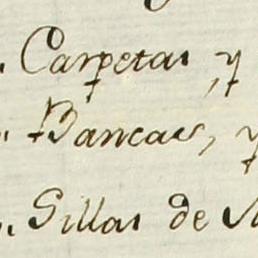 Carpetas, y
Bancas, y
Sillas de